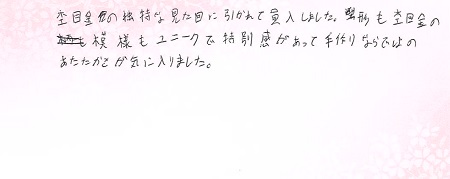 杢目金の独特な見た目に引かれて購入しました。形も杢目金の
模様もユニークで特別感があって手作りならではの
あたたかさが気に入りました。